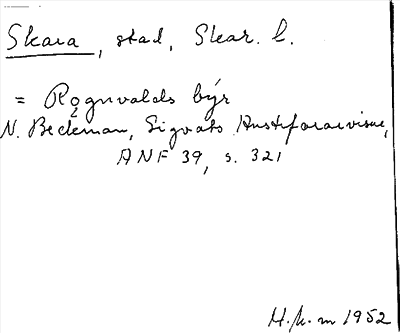 Skara, stad, Skar. l.
= Rǫgnvalds býr
N. Beckman, Sigvats Austrfararvísur,
ANF 39, s. 321
H. k. m 1952